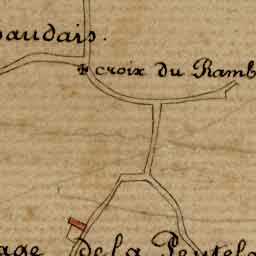 baudais.
croix du Ramb
age de la Peutela